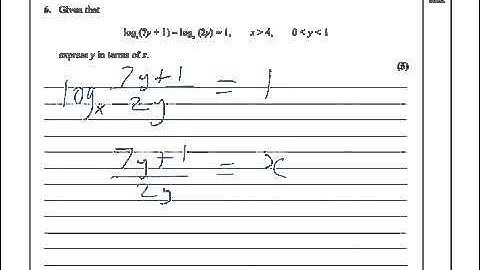 6. Given that
logₓ(7y + 1) – logₓ (2y) = 1, x > 4, 0 < y < 1
express y in terms of x.
(5)
logₓ (7y+1)/(2y) = 1
(7y+1)/(2y) = x